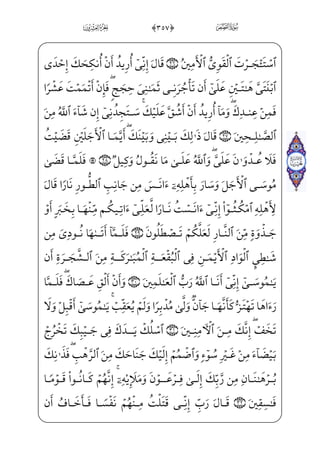 ﴿٣٥٧﴾
ٱسۡتَـٔۡجَرۡتَ ٱلۡقَوِيُّ ٱلۡأَمِينُ ٢٦ قَالَ إِنِّيٓ أُرِيدُ أَنۡ أُنكِحَكَ إِحۡدَى
ٱبۡنَتَيَّ هَٰتَيۡنِ عَلَىٰٓ أَن تَأۡجُرَنِي ثَمَٰنِيَ حِجَجٖۖ فَإِنۡ أَتۡمَمۡتَ عَشۡرٗا
فَمِنۡ عِندِكَۖ وَمَآ أُرِيدُ أَنۡ أَشُقَّ عَلَيۡكَۚ سَتَجِدُنِيٓ إِن شَآءَ ٱللَّهُ مِنَ
ٱلصَّٰلِحِينَ ٢٧ قَالَ ذَٰلِكَ بَيۡنِي وَبَيۡنَكَۖ أَيَّمَا ٱلۡأَجَلَيۡنِ قَضَيۡتُ
فَلَا عُدۡوَٰنَ عَلَيَّۖ وَٱللَّهُ عَلَىٰ مَا نَقُولُ وَكِيلٞ ٢٨ ۞ فَلَمَّا قَضَىٰ
مُوسَى ٱلۡأَجَلَ وَسَارَ بِأَهۡلِهِۦٓ ءَانَسَ مِن جَانِبِ ٱلطُّورِ نَارٗا قَالَ
لِأَهۡلِهِ ٱمۡكُثُوٓاْ إِنِّيٓ ءَانَسۡتُ نَارٗا لَّعَلِّيٓ ءَاتِيكُم مِّنۡهَا بِخَبَرٍ أَوۡ
جَذۡوَةٖ مِّنَ ٱلنَّارِ لَعَلَّكُمۡ تَصۡطَلُونَ ٢٩ فَلَمَّآ أَتَىٰهَا نُودِيَ مِن
شَٰطِيِٕ ٱلۡوَادِ ٱلۡأَيۡمَنِ فِي ٱلۡبُقۡعَةِ ٱلۡمُبَٰرَكَةِ مِنَ ٱلشَّجَرَةِ أَن
يَٰمُوسَىٰٓ إِنِّيٓ أَنَا ٱللَّهُ رَبُّ ٱلۡعَٰلَمِينَ ٣٠ وَأَنۡ أَلۡقِ عَصَاكَۖ فَلَمَّا
رَءَاهَا تَهۡتَزُّ كَأَنَّهَا جَآنّٞ وَلَّىٰ مُدۡبِرٗا وَلَمۡ يُعَقِّبۡۚ يَٰمُوسَىٰٓ أَقۡبِلۡ وَلَا
تَخَفۡۖ إِنَّكَ مِنَ ٱلۡأٓمِنِينَ ٣١ ٱسۡلُكۡ يَدَكَ فِي جَيۡبِكَ تَخۡرُجۡ
بَيۡضَآءَ مِنۡ غَيۡرِ سُوٓءٖ وَٱضۡمُمۡ إِلَيۡكَ جَنَاحَكَ مِنَ ٱلرَّهۡبِۖ فَذَٰنِكَ
بُرۡهَٰنَانِ مِن رَّبِّكَ إِلَىٰ فِرۡعَوۡنَ وَمَلَإِيْهِۦٓۚ إِنَّهُمۡ كَانُواْ قَوۡمٗا
فَٰسِقِينَ ٣٢ قَالَ رَبِّ إِنِّي قَتَلۡتُ مِنۡهُمۡ نَفۡسٗا فَأَخَافُ أَن